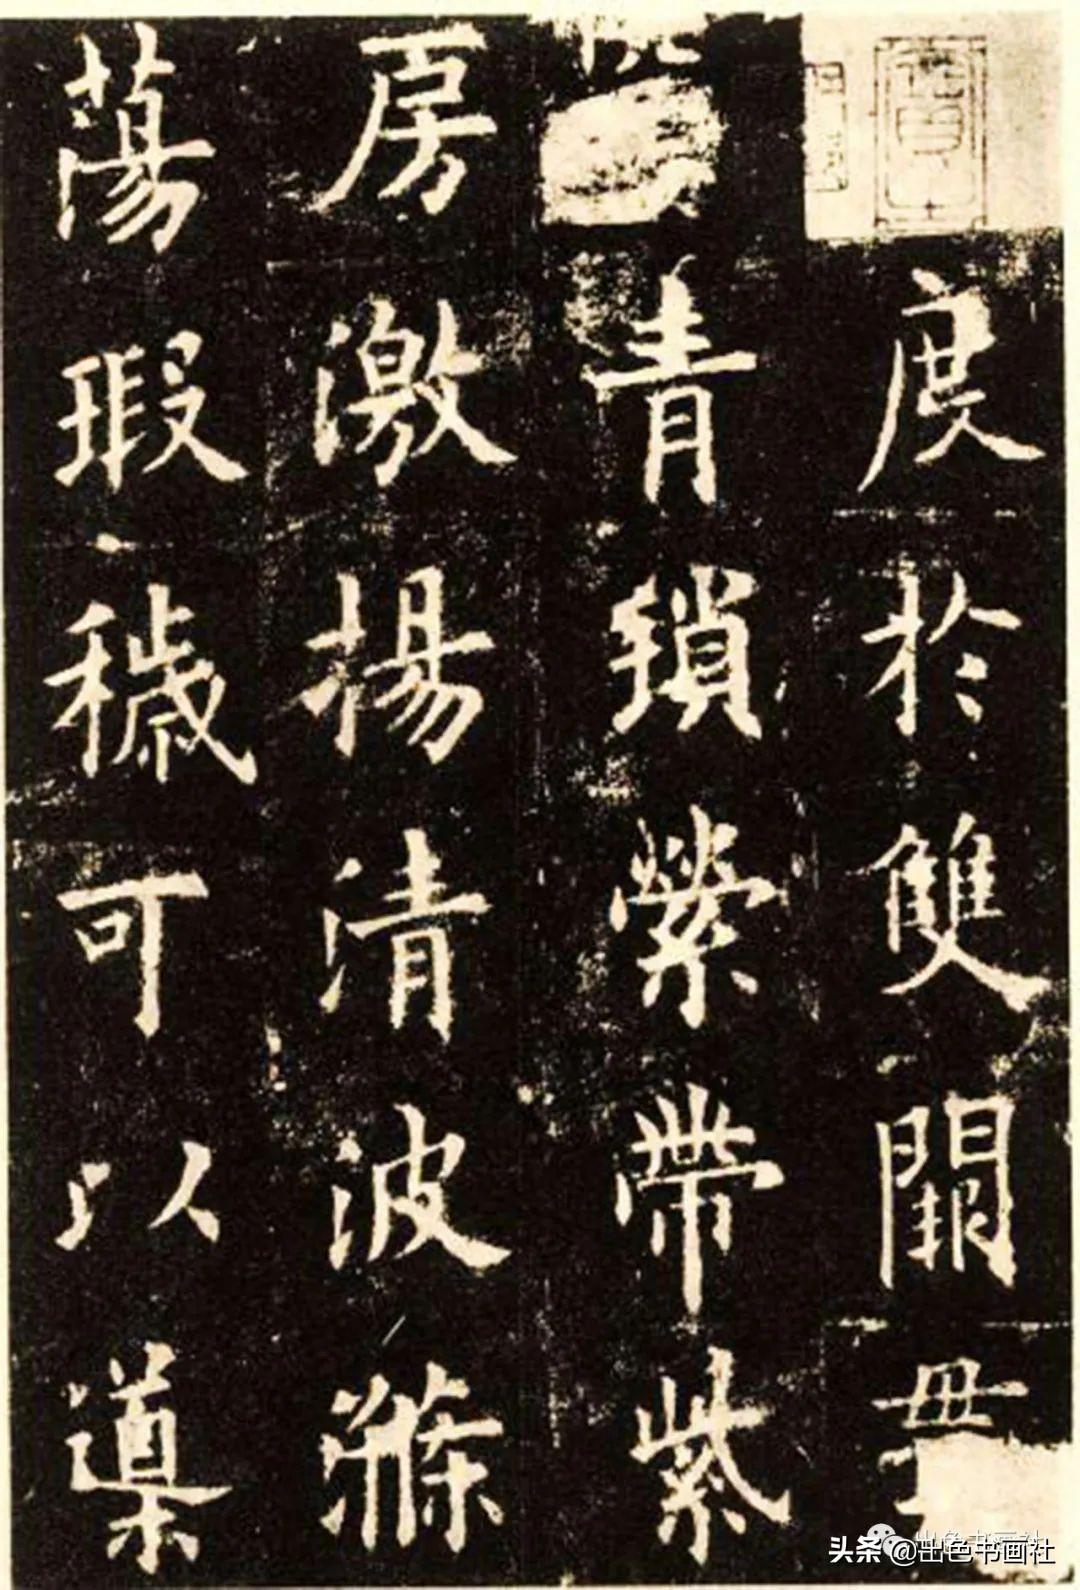 度於雙闕
青鎖縈帶紫
房激揚清波滌
蕩瑕穢可以導
出色书画社
头条 @出色书画社